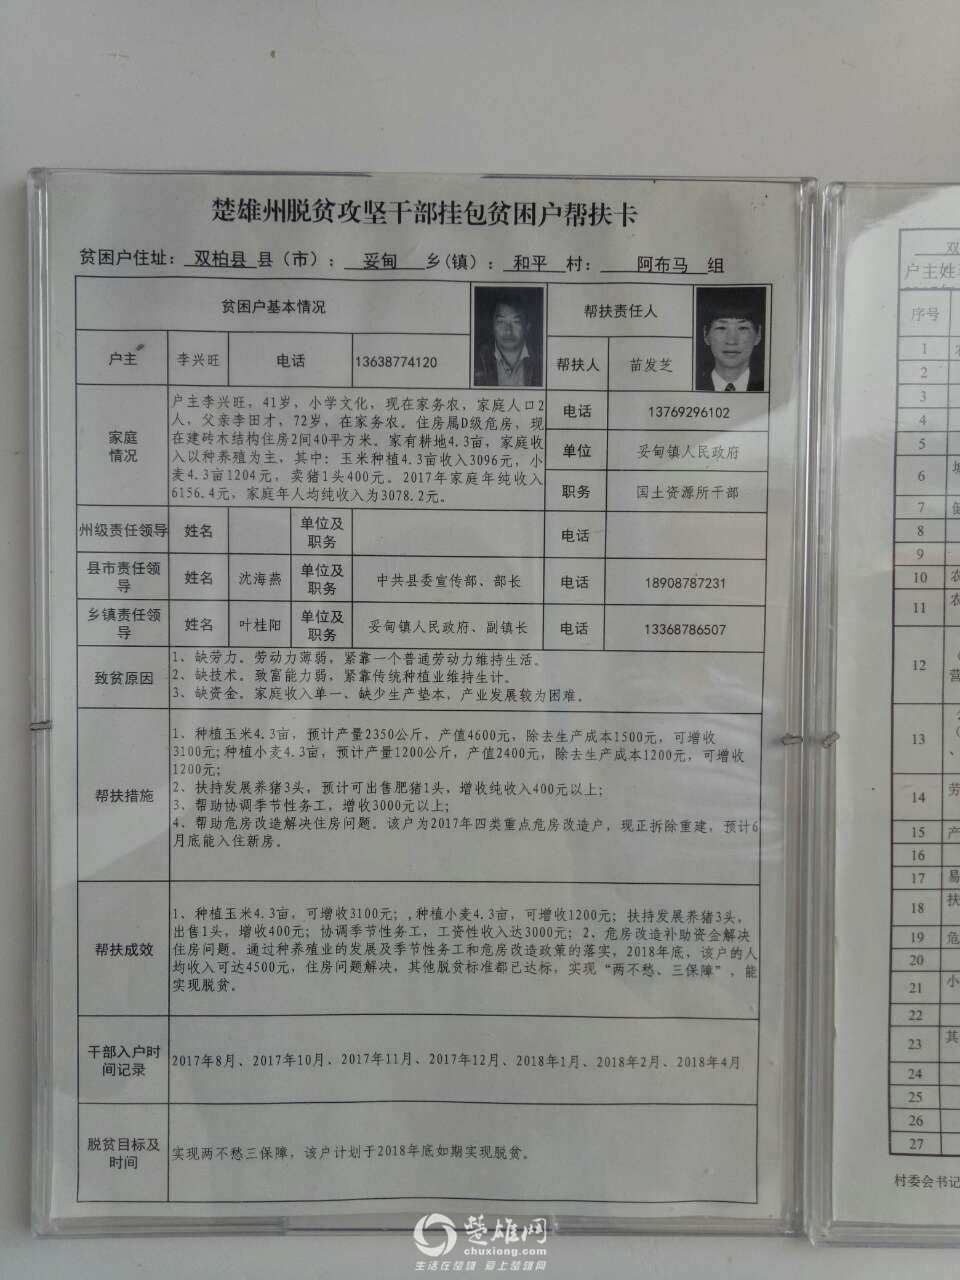 楚雄州脱贫攻坚干部挂包贫困户帮扶卡
贫困户住址：双柏县 县（市）：妥甸 乡（镇）：和平 村：阿布马 组
贫困户基本情况 帮扶责任人
户主 李兴旺 电话 13638774120 帮扶人 苗发芝
家庭情况
户主李兴旺，41岁，小学文化，现在家务农，家庭人口2
人，父亲李田才，72岁，在家务农。住房属D级危房，现
在建砖木结构住房2间40平方米。家有耕地4.3亩，家庭收
入以种养殖为主，其中：玉米种植4.3亩收入3096元，小
麦4.3亩1204元，卖猪1头400元。2017年家庭年纯收入
6156.4元，家庭年人均纯收入为3078.2元。
电话 13769296102
单位 妥甸镇人民政府
职务 国土资源所干部
州级责任领导 姓名 单位及职务 电话
县市责任领导 姓名 沈海燕 单位及职务 中共县委宣传部、部长 电话 18908787231
乡镇责任领导 姓名 叶桂阳 单位及职务 妥甸镇人民政府、副镇长 电话 13368786507
致贫原因
1、缺劳力。劳动力薄弱，紧靠一个普通劳动力维持生活。
2、缺技术。致富能力弱，紧靠传统种植业维持生计。
3、缺资金。家庭收入单一、缺少生产垫本，产业发展较为困难。
帮扶措施
1、种植玉米4.3亩，预计产量2350公斤，产值4600元，除去生产成本1500元，可增收
3100元；种植小麦4.3亩，预计产量1200公斤，产值2400元，除去生产成本1200元，可增收
1200元；
2、扶持发展养猪3头，预计可出售肥猪1头，增收纯收入400元以上；
3、帮助协调季节性务工，增收3000元以上；
4、帮助危房改造解决住房问题。该户为2017年四类重点危房改造户，现正拆除重建，预计6
月底能入住新房。
帮扶成效
1、种植玉米4.3亩，可增收3100元；,种植小麦4.3亩，可增收1200元；扶持发展养猪3头，
出售1头，增收400元；协调季节性务工，工资性收入达3000元；2、危房改造补助资金解决
住房问题。通过种养殖业的发展及季节性务工和危房改造政策的落实，2018年底，该户的人
均收入可达4500元，住房问题解决，其他脱贫标准都已达标，实现“两不愁、三保障”，能
实现脱贫。
干部入户时间记录
2017年8月、2017年10月、2017年11月、2017年12月、2018年1月、2018年2月、2018年4月
脱贫目标及时间
实现两不愁三保障，该户计划于2018年底如期实现脱贫。
双
户主姓
序号
1
2
3
4
5
6
7
8
9
10 农
11 农
12
营
13
14 劳
15 产
16
17 易
18 扶
19 危
20
21 小
22
23 其
24
25
26
27
村委会书记
楚雄网
chuxiong.com
生活在楚雄 爱上楚雄网